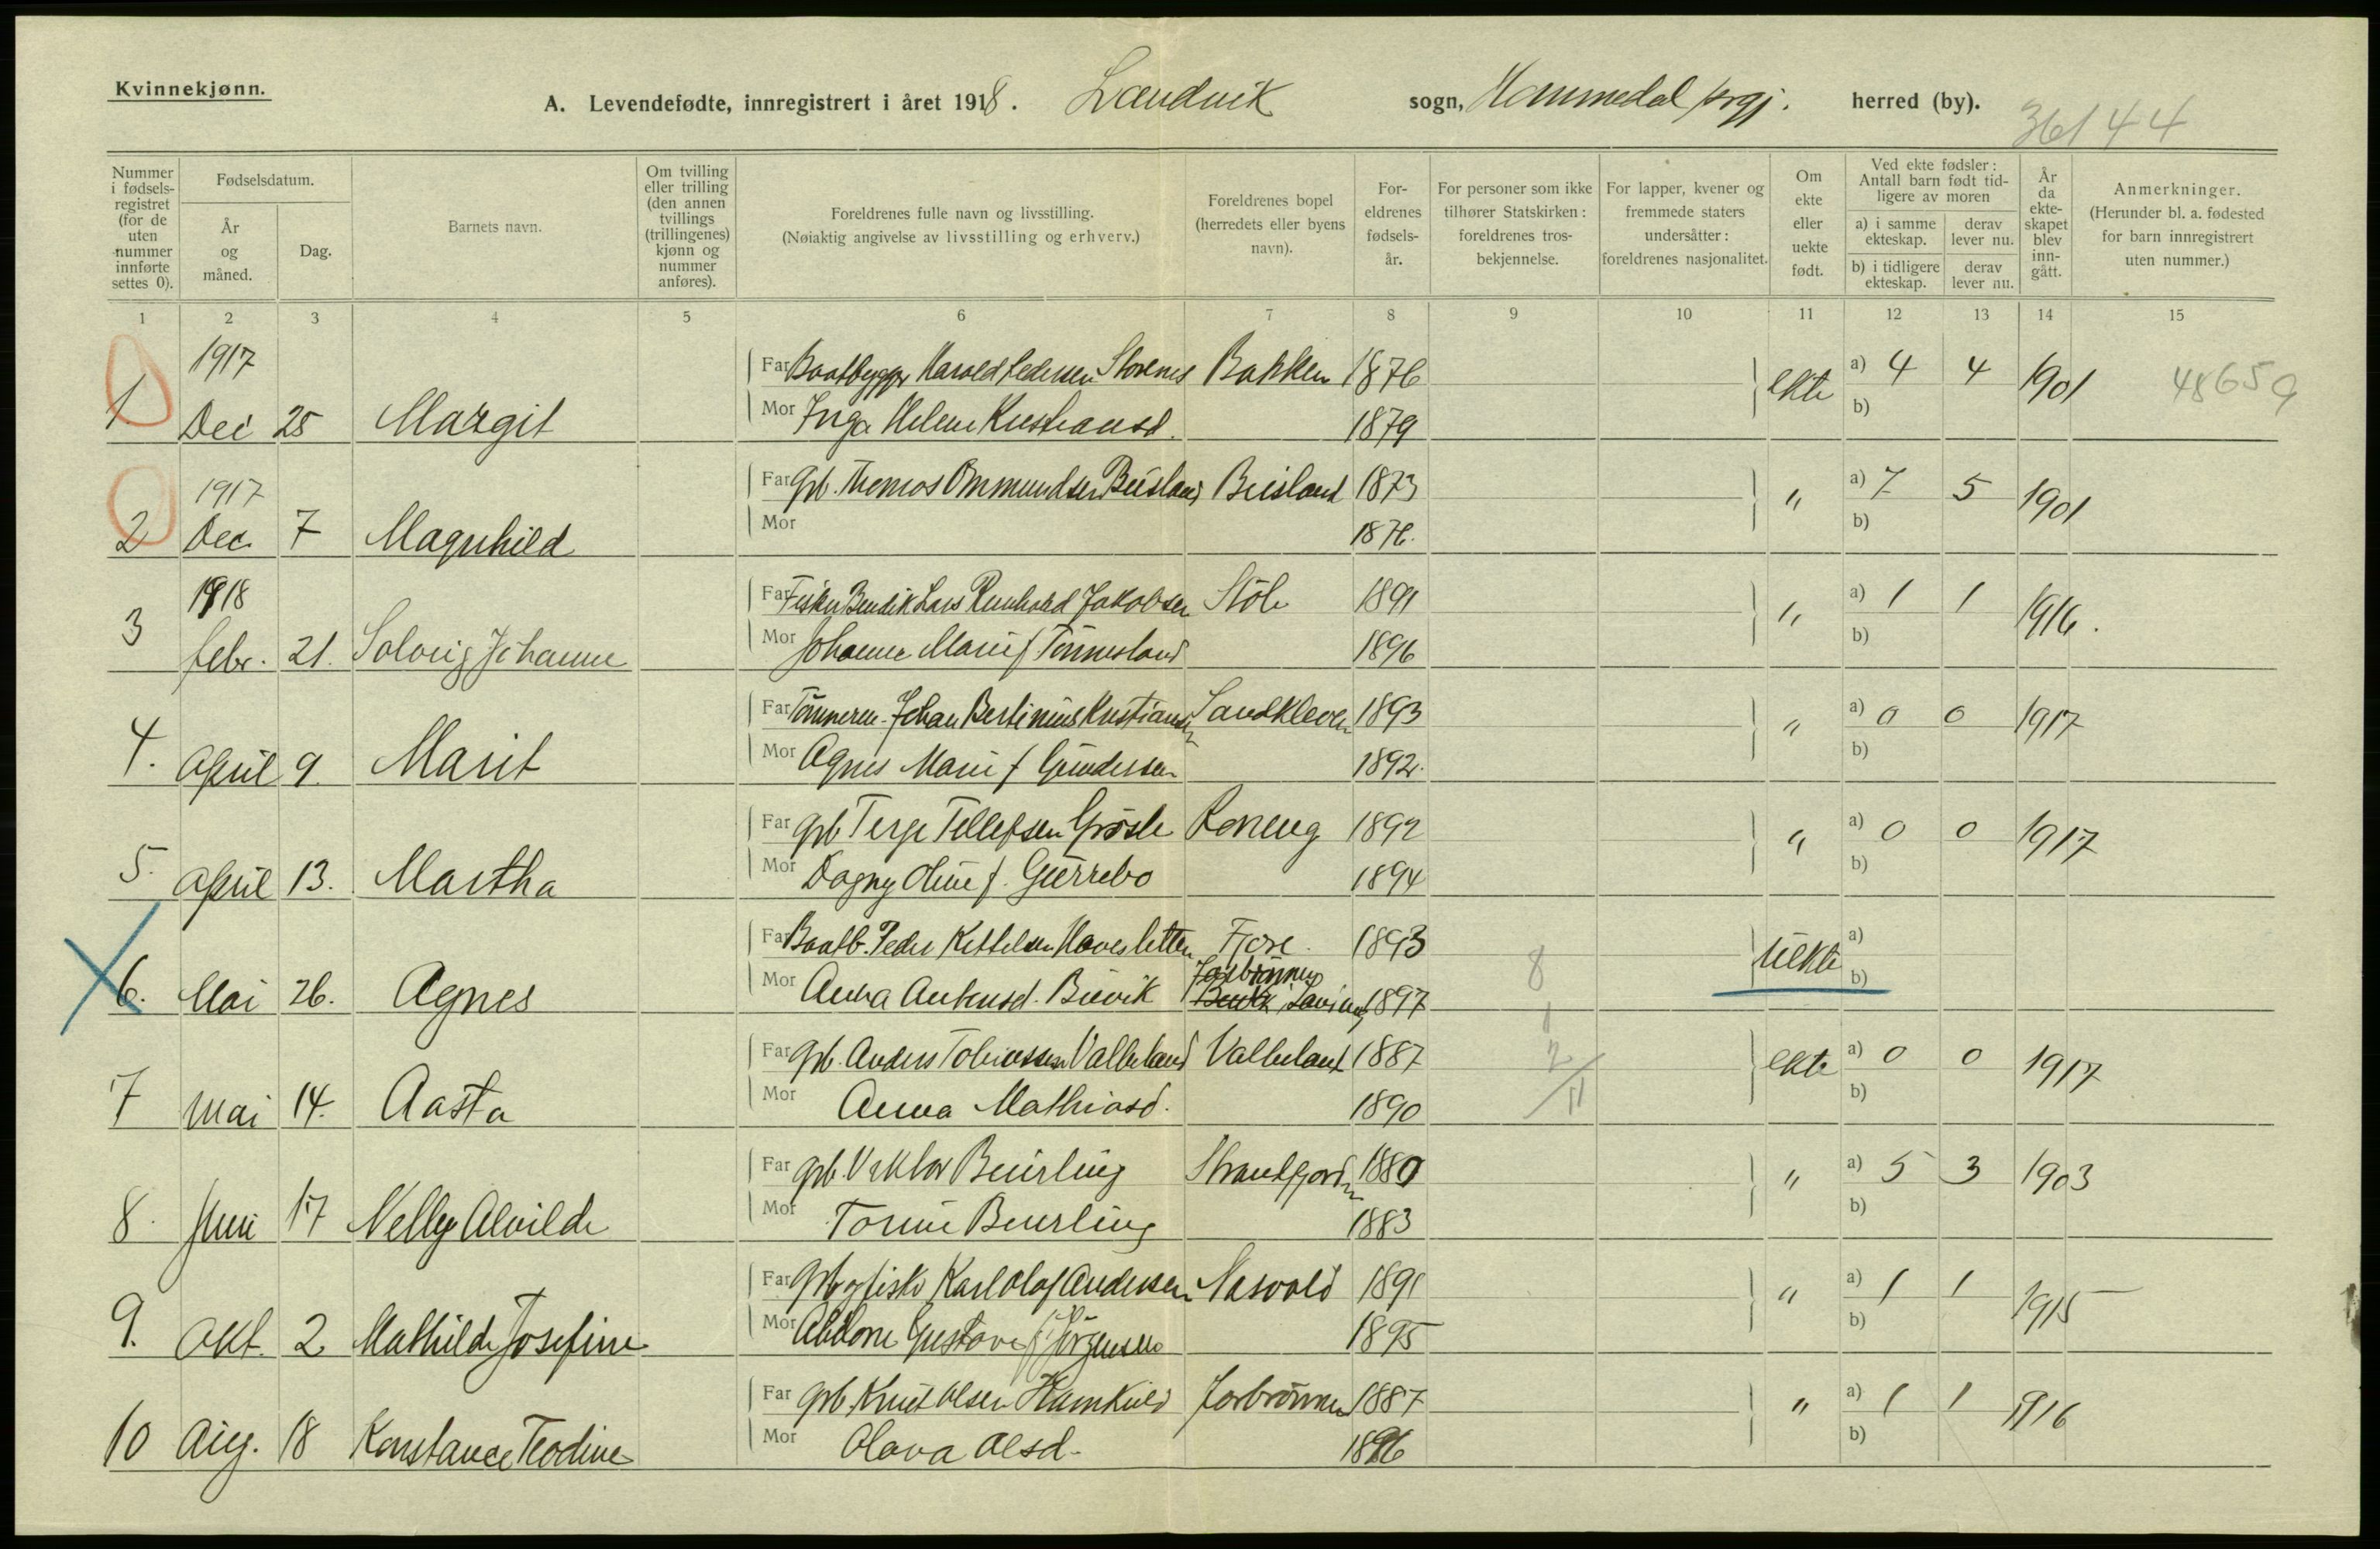 Kvinnekjønn.
A. Levendefødte, innregistrert i året 1918. Landvik sogn, Hommedal prgj. herred (by).
36144
Nummer i fødselsregistret (for de uten nummer innførte settes 0).
Fødselsdatum.
År og måned.
Dag.
Barnets navn.
Om tvilling eller trilling (den annen tvillings (trillingenes) kjønn og nummer anføres).
Foreldrenes fulle navn og livsstilling.
(Nøiaktig angivelse av livsstilling og erhverv.)
Foreldrenes bopel (herredets eller byens navn).
Foreldrenes fødselsår.
For personer som ikke tilhører Statskirken: foreldrenes trosbekjennelse.
For lapper, kvener og fremmede staters undersåtter: foreldrenes nasjonalitet.
Om ekte eller uekte født.
Ved ekte fødsler: Antall barn født tidligere av moren
a) i samme ekteskap.
derav lever nu.
b) i tidligere ekteskap.
derav lever nu.
År da ekteskapet blev inngått.
Anmerkninger.
(Herunder bl. a. fødested for barn innregistrert uten nummer.)
1 2 3 4 5 6 7 8 9 10 11 12 13 14 15
1917 Far Baatbygger Harald Pedersen Storenes Bakken 1876 ekte a) 4 4 1901 48659
1. Dec 25 Margit Mor Inga Helene Kristiansd. 1879 b)
1917 Far Grb. Thomas Ommundsen Beisland Beisland 1873 " a) 7 5 1901
2 Dec. 7 Magnhild Mor 1876. b)
1918 Far Fisker Bendik Lars Reinhold Jakobsen Støle 1891 " a) 1 1 1916.
3 febr. 21. Solveig Johanne Mor Johanne Marie f. Tønnesland 1896 b)
Far Tømmerm. Johan Bertinius Kristiansen Sandkleven 1893 " a) 0 0 1917
4. April 9. Marit Mor Agnes Marie f. Gundersen 1892. b)
Far Grb Terje Tellefsen Grøsle Roneng 1892 " a) 0 0 1917
5. April 13. Martha Mor Dagny Oline f. 1894 b)
Far Baatb. Peder Kittelsen Haversletten Fjære. 1893 uekte a)
6. Mai 26. Agnes Mor Anna Antensd. Buvik Jorbrønnes 1897 8 b)
Far Grb. Anders Tobiassen Valleland Valleland 1887 ekte a) 0 0 1917
7 Mai 14. Aasta Mor Anna Mathiasd. 1890 b)
Far Grb. Viktor Beurling Strandfjorden 1880 " a) 5 3 1903
8. Juni 17 Nelly Alvilde Mor Torine Beurling 1883 b)
Far Grb og fisker Karl Olaf Andersen Nasvold 1891 " a) 1 1 1915
9. Okt. 2 Mathilde Josefine Mor Gustava f. Jørgensen 1895 b)
Far Grb. Knut Olsen Jorbrønnes 1887 " a) 1 1 1916
10 Aug. 18 Konstance Teodine Mor Olava Olsd. 1896 b)